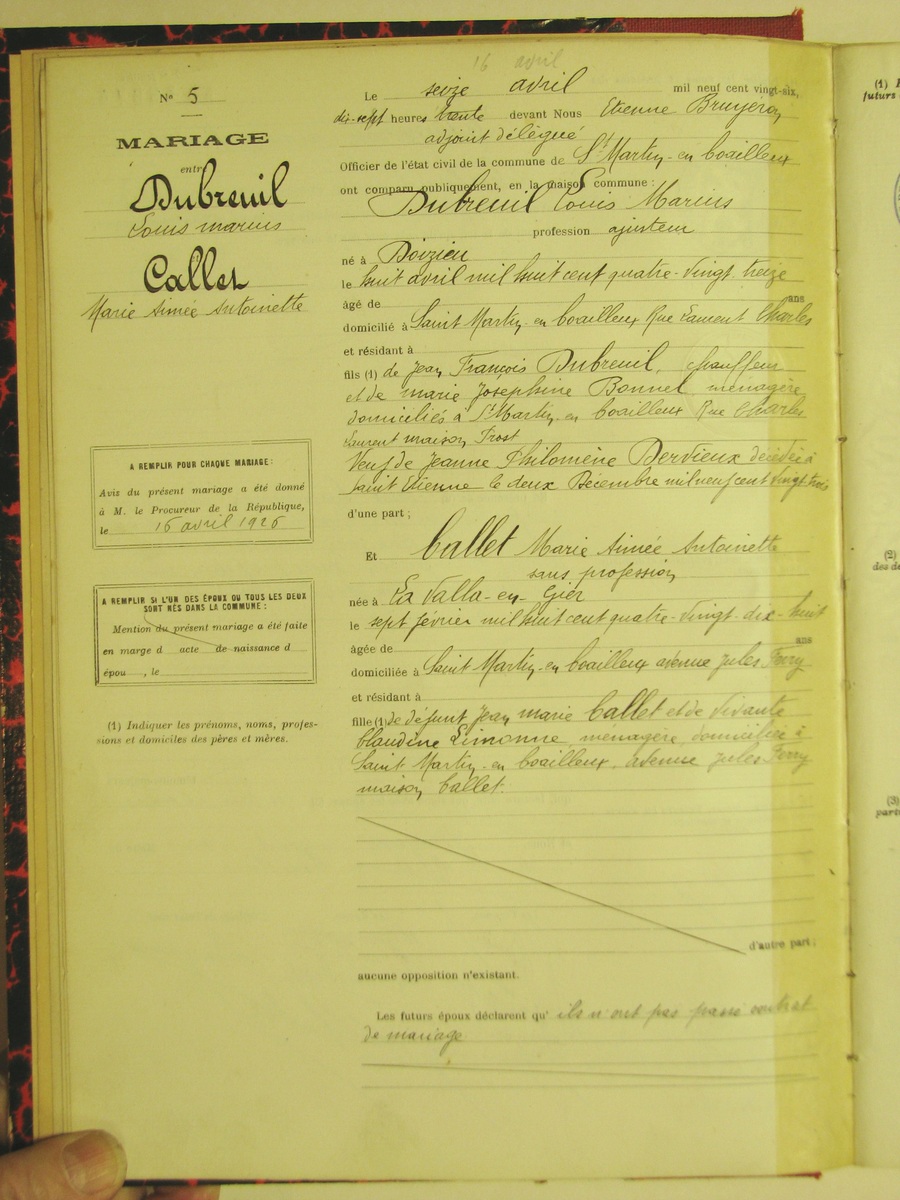 16 avril
N° 5
MARIAGE
entre
Dubreuil
Louis marius
Callet
Marie Aimée Antoinette
A REMPLIR POUR CHAQUE MARIAGE :
Avis du présent mariage a été donné
à M. le Procureur de la République,
le 16 avril 1926
A REMPLIR SI L'UN DES ÉPOUX OU TOUS LES DEUX
SONT NÉS DANS LA COMMUNE :
Mention du présent mariage a été faite
en marge d acte de naissance d
épou , le
(1) Indiquer les prénoms, noms, profes-
sions et domiciles des pères et mères.
Le seize avril mil neuf cent vingt-six,
dix-sept heures trente devant Nous Etienne Bruyeron
adjoint délégué
Officier de l'état civil de la commune de St Martin-en Coailleux
ont comparu publiquement, en la maison commune :
Dubreuil Louis Marius
profession ajusteur
né à Doizieu
le huit avril mil huit cent quatre-vingt-treize
âgé de ans
domicilié à Saint Martin-en Coailleux Rue Laurent Charles
et résidant à
fils (1) de Jean François Dubreuil, chauffeur
et de marie Josephine Bonnel menagère
domiciliés à St Martin-en Coailleux Rue Charles
Laurent maison Frost
Veuf de Jeanne Philomène Dervieux décédée à
Saint Etienne le deux Décembre mil neuf cent vingt-trois
d'une part ;
Et Callet Marie Aimée Antoinette
sans profession
née à La Valla-en-Gier
le sept février mil huit cent quatre-vingt-dix-huit
âgée de ans
domiciliée à Saint Martin-en Coailleux avenue Jules Ferry
et résidant à
fille (1) de défunt Jean marie Callet et de vivante
Claudine Limonne, menagère, domiciliée à
Saint Martin-en Coailleux, avenue Jules Ferry
maison Callet.
d'autre part ;
aucune opposition n'existant.
Les futurs époux déclarent qu' ils n'ont pas passé contrat
de mariage
(1)
futurs
(2)
des de
(3)
part